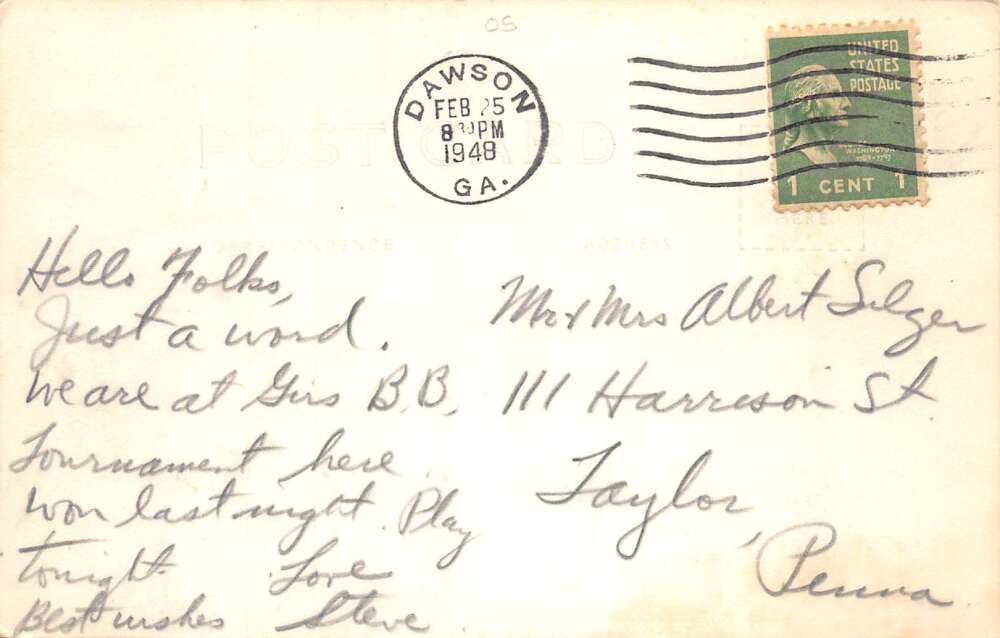 05
DAWSON
FEB 25
8 30 PM
1948
GA.
UNITED
STATES
POSTAGE
WASHINGTON
1 CENT 1
POST CARD
CORRESPONDENCE
ADDRESS
HERE
Hello Folks,
Just a word.
We are at Girs B.B.
Tournament here
won last night. Play
tonight. Love
Best wishes Steve
Mr & Mrs Albert Selger
111 Harrison St
Taylor,
Penna